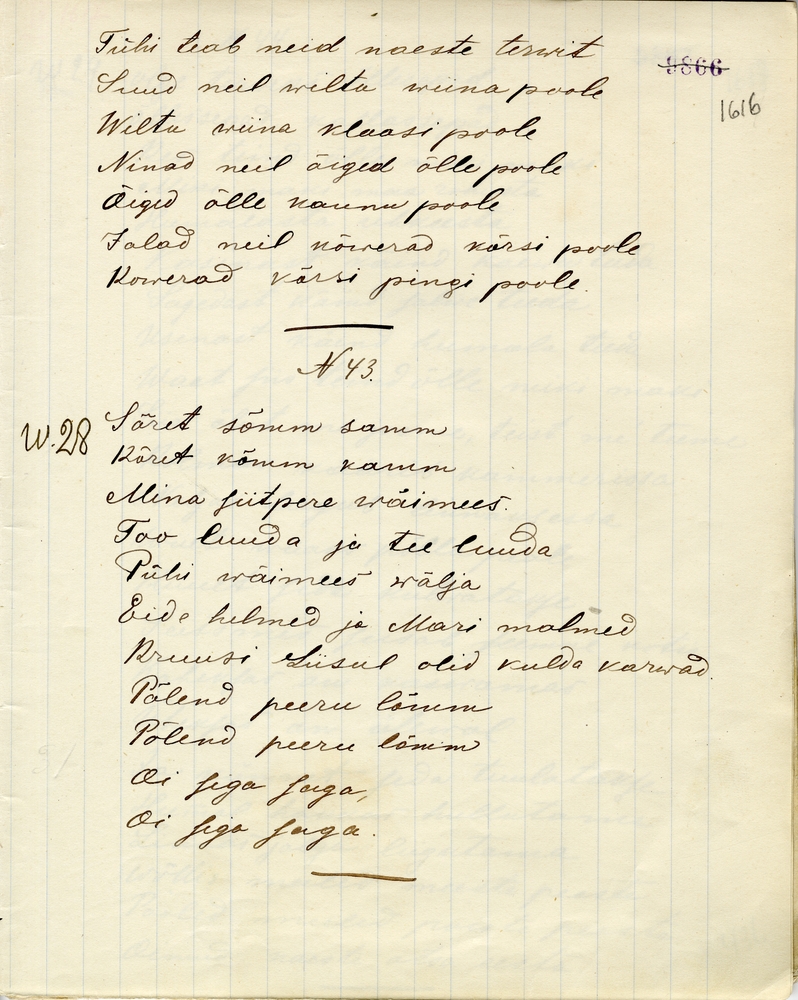 Tühi teab neid naeste terwit
9866
Suud neil wiltu wiina poole
1616
Wiltu wiina klaasi poole
Ninad neil õiged õlle poole
Õiged õlle kannu poole
Jalad neil kõwerad kõrsi poole
Kowerad kõrsi pingi poole.
N 43.
W. 28
Sõret sõmm samm
Kõret kõmm kamm
Mina siitpere wäimees.
Too luuda ja tee luuda
Pühi wäimees wälja
Eide helmed ja Mari malmed
Kruusi Liisul olid kulda karwad.
Põlend peeru lõmm
Põlend peeru lõmm
Oi siga saga,
Oi siga saga.